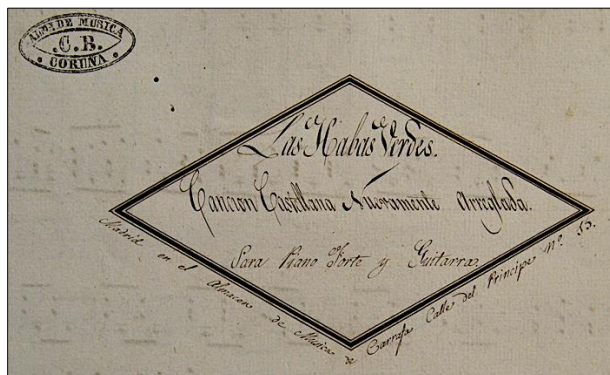 ALMN DE MUSICA
.C.B.
CORUÑA
Las Habas Verdes.
Cancion Castellana Nuevamente Arreglada.
Para Piano Forte y Guitarra.
Madrid en el Almacen de Musica de Carrafa Calle del Principe Nº 15.